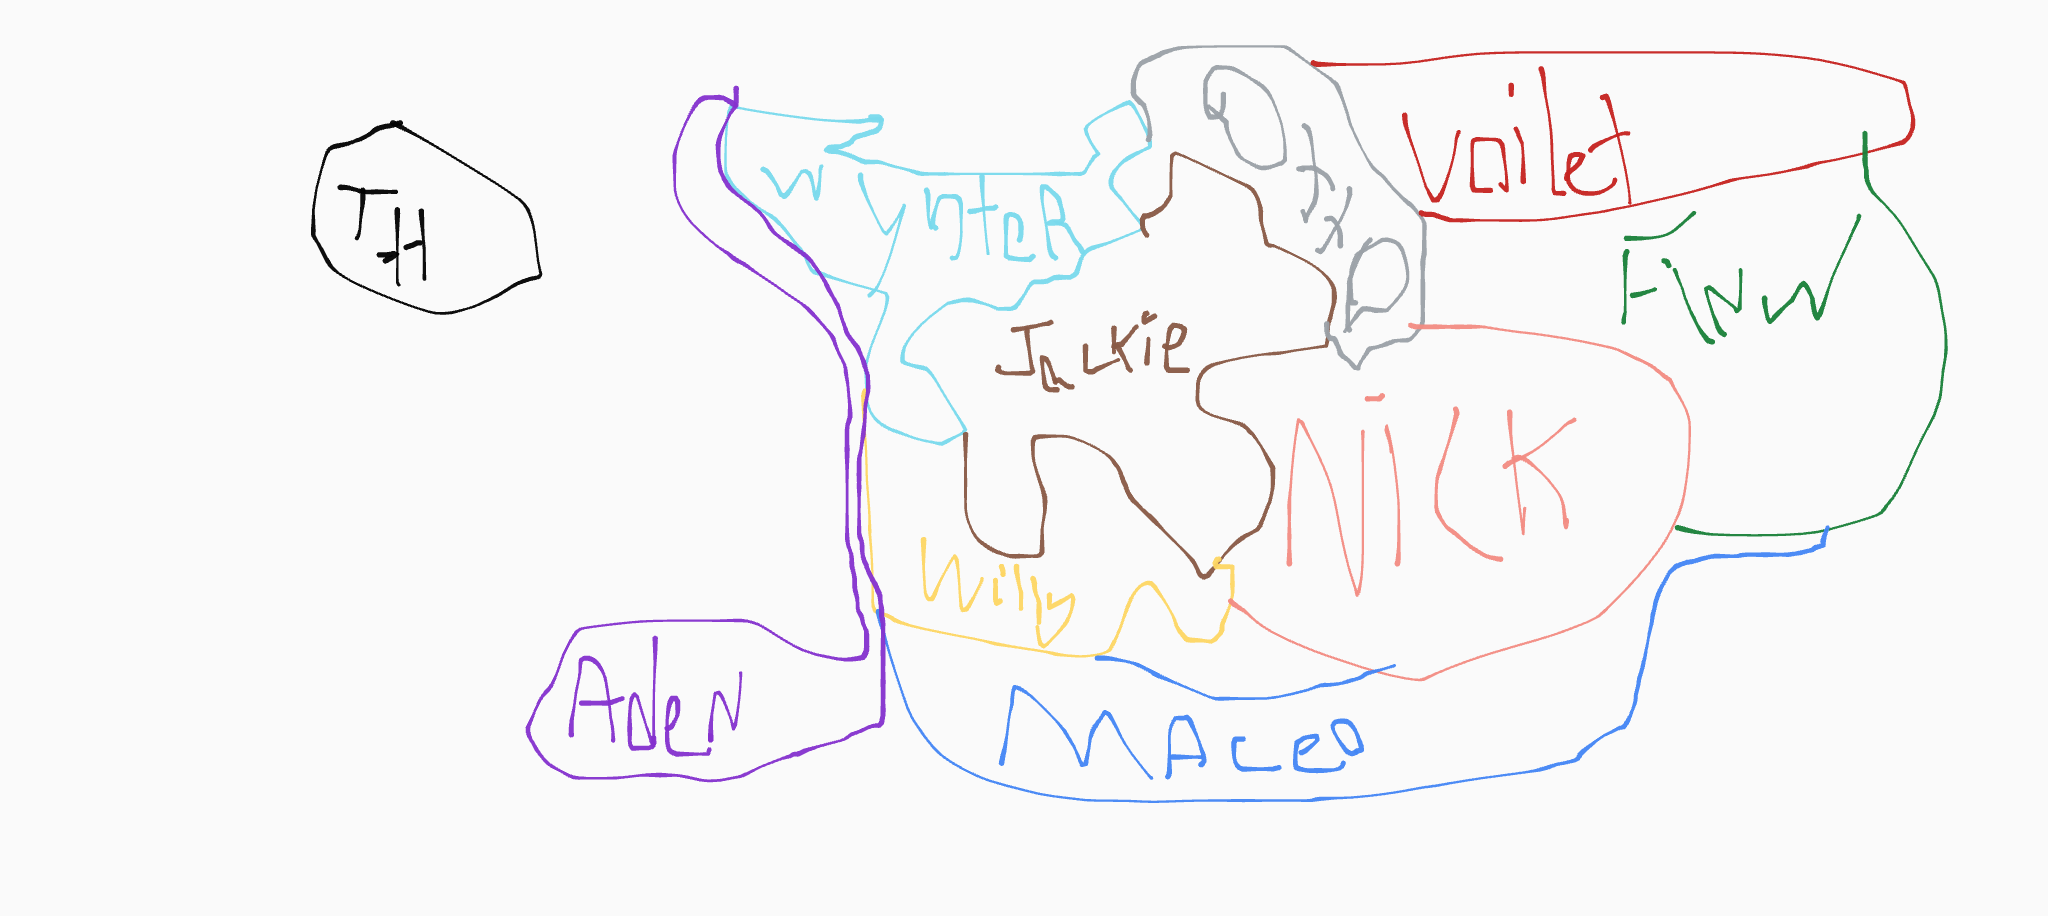 TH
WinteR
Voilet
Finn
Jackie
Nick
Willy
ADeN
MACeo